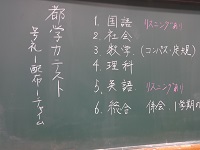 都学力テスト
号礼→配布→チャイム
1. 国語 リスニングあり
2. 社会
3. 数学 (コンパス・定規)
4. 理科
5. 英語 リスニングあり
6. 総合 係会 1学期の